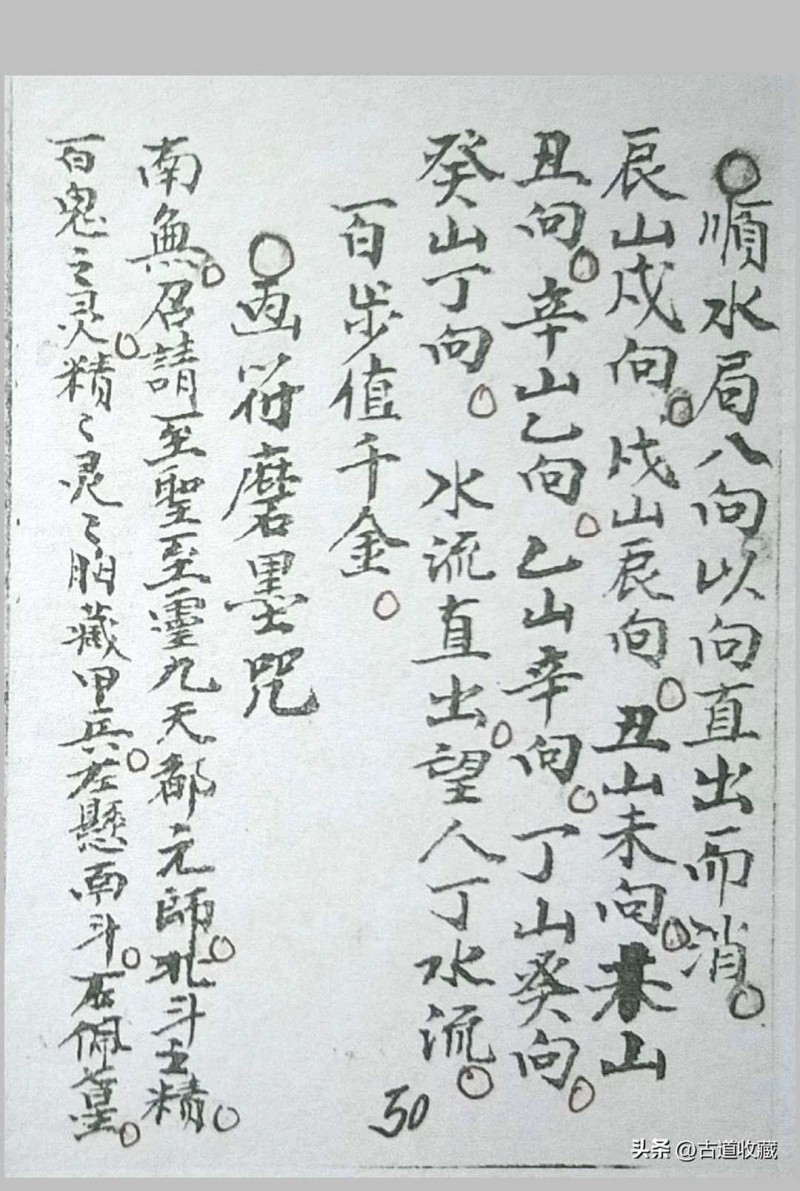 ○順水局八向以向直出而消○
辰山戍向○戍山辰向○丑山未向○未山
丑向○辛山乙向○乙山辛向○丁山癸向○
癸山丁向○水流直出○望人丁水流○
百步值千金○
○画符磨墨咒
南無○召請至聖至靈九天都元師○北斗之精○
百鬼之灵○精〻灵〻胸藏甲兵○左懸南斗○右佩
30
头条 @古道收藏